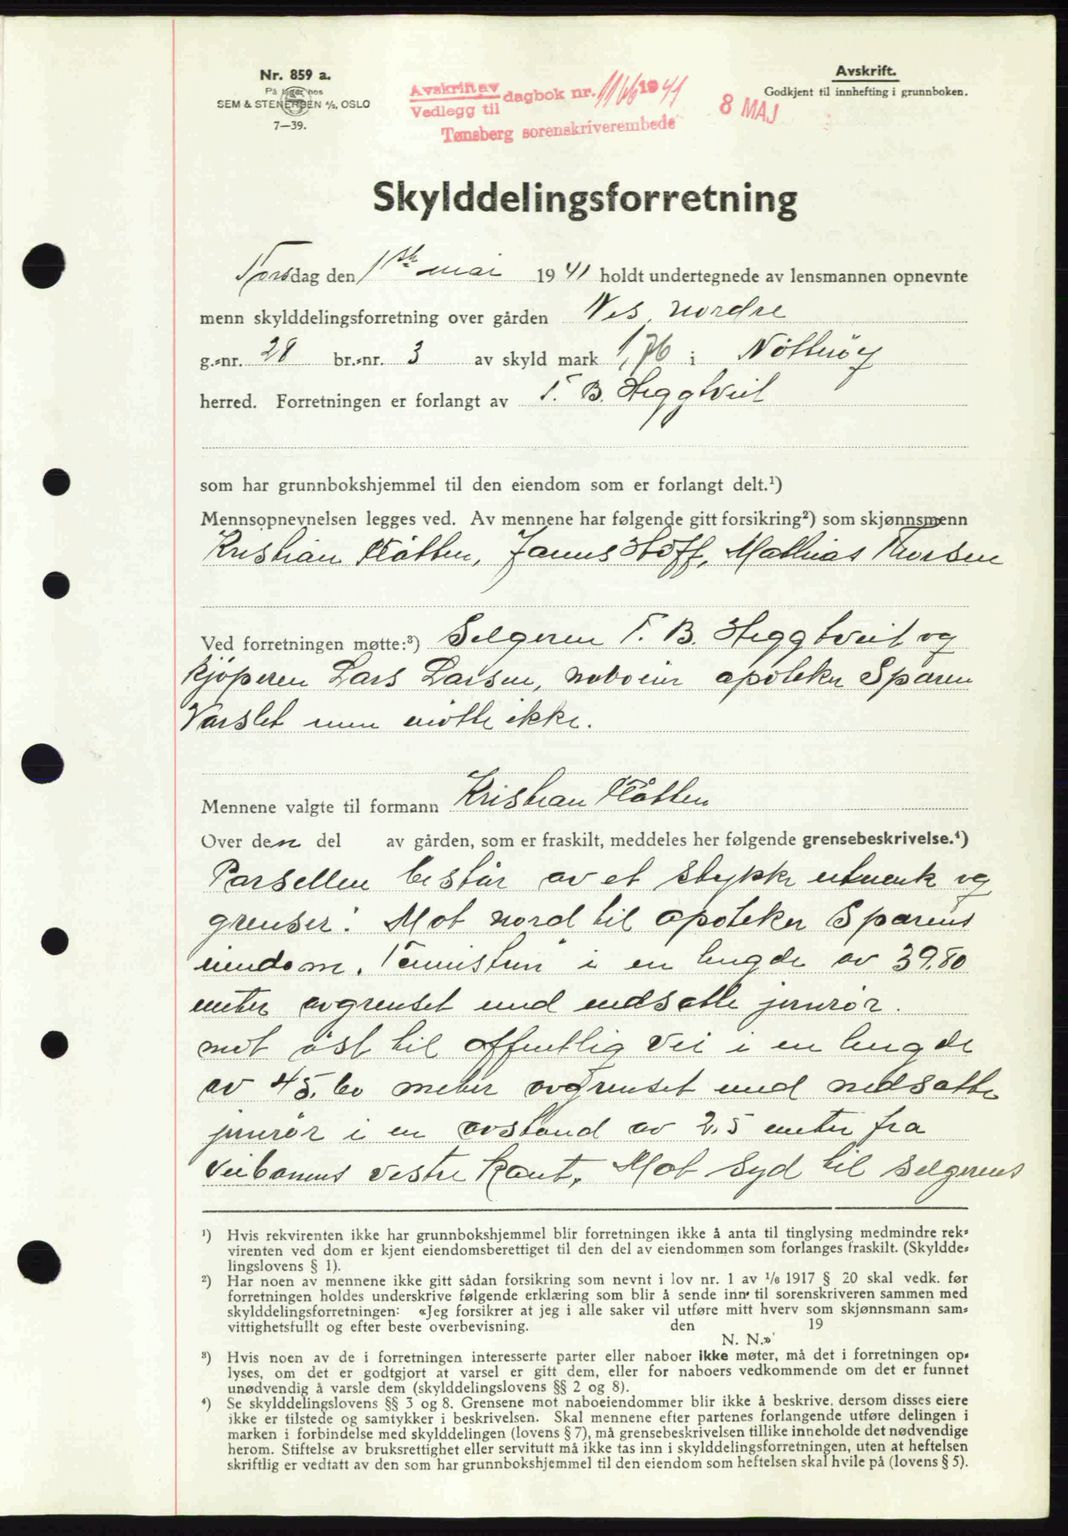 Nr. 859 a.
På lager hos
SEM & STENERSEN A/S, OSLO
7—39.
Avskrift av
Vedlegg til
dagbok nr. 1941
Tønsberg sorenskriverembede
8 MAJ
Avskrift.
Godkjent til innhefting i grunnboken.
Skylddelingsforretning
Torsdag den 1ste mai 1941 holdt undertegnede av lensmannen opnevnte
menn skylddelingsforretning over gården Nes, nordre
g.-nr. 28 br.-nr. 3 av skyld mark 1,76 i Nøtterøy
herred. Forretningen er forlangt av T. B. Heggtveit
som har grunnbokshjemmel til den eiendom som er forlangt delt.¹)
Mennsopnevnelsen legges ved. Av mennene har følgende gitt forsikring²) som skjønnsmenn
Kristian Flåtten, Hoff, Mathias Thorsen
Ved forretningen møtte:³) Selgeren T. B. Heggtveit og
kjøperen Lars Larsen, naboeier apoteker Sparen
Varslet men møtte ikke.
Mennene valgte til formann Kristian Flåtten
Over den del av gården, som er fraskilt, meddeles her følgende grensebeskrivelse.⁴)
Parsellen består av et stykke utmark og
grenser: Mot nord til apoteker Sparens
eiendom, i en lengde av 39.80
meter avgrenset med nedsatte jernrør.
mot øst til offentlig vei i en lengde
av 45.60 meter avgrenset med nedsatte
jernrør i en avstand av 2.5 meter fra
veibanens vestre kant. Mot syd til selgerens
¹) Hvis rekvirenten ikke har grunnbokshjemmel blir forretningen ikke å anta til tinglysing medmindre rek-
virenten ved dom er kjent eiendomsberettiget til den del av eiendommen som forlanges fraskilt. (Skyldde-
lingslovens § 1).
²) Har noen av mennene ikke gitt sådan forsikring som nevnt i lov nr. 1 av 1/6 1917 § 20 skal vedk. før
forretningen holdes underskrive følgende erklæring som blir å sende inn til sorenskriveren sammen med
skylddelingsforretningen: «Jeg forsikrer at jeg i alle saker vil utføre mitt hverv som skjønnsmann sam-
vittighetsfullt og efter beste overbevisning. den 19
N. N.»
³) Hvis noen av de i forretningen interesserte parter eller naboer ikke møter, må det i forretningen op-
lyses, om det er godtgjort at varsel er gitt dem, eller for naboers vedkommende om det er funnet
unødvendig å varsle dem (skylddelingslovens §§ 2 og 8).
⁴) Se skylddelingslovens §§ 3 og 8. Grensene mot naboeiendommer blir ikke å beskrive, dersom disses eiere
ikke er tilstede og samtykker i beskrivelsen. Skal mennene efter partenes forlangende utføre delingen i
marken i forbindelse med skylddelingen (lovens § 7), må grensebeskrivelsen tillike inneholde det nødvendige
herom. Stiftelse av bruksrettighet eller servitutt må ikke tas inn i skylddelingsforretningen, uten at heftelsen
skriftlig er vedtatt av den som har grunnbokshjemmel til den eiendom som heftelsen skal hvile på (lovens § 5).